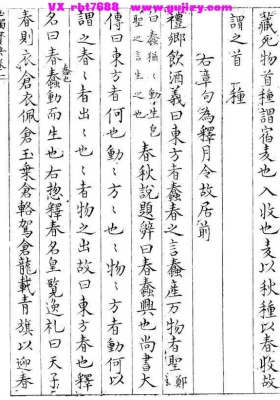 VX rht7688 www.gujiewang.com
藏死物首種謂宿麦也入收也麦以秋種以春収故
謂之首種
右章句為釋月令故居前
禮郷飲酒義曰東方者蠢春之言蠢産万物有聖鄭
曰蠢猶動生皃聖之言生之也 春秋説題辞曰春蠢興也尚書大
傳曰東方者何也動〻方〻也〻物〻方者動何以
謂之春〻者出〻也〻者物之出故曰東方春也釋
名曰春蠢動而生也右惣釋春名皇覧逸礼曰天子
春則衣倉衣佩倉玉乗倉輅駕倉龍載青旗以迎春